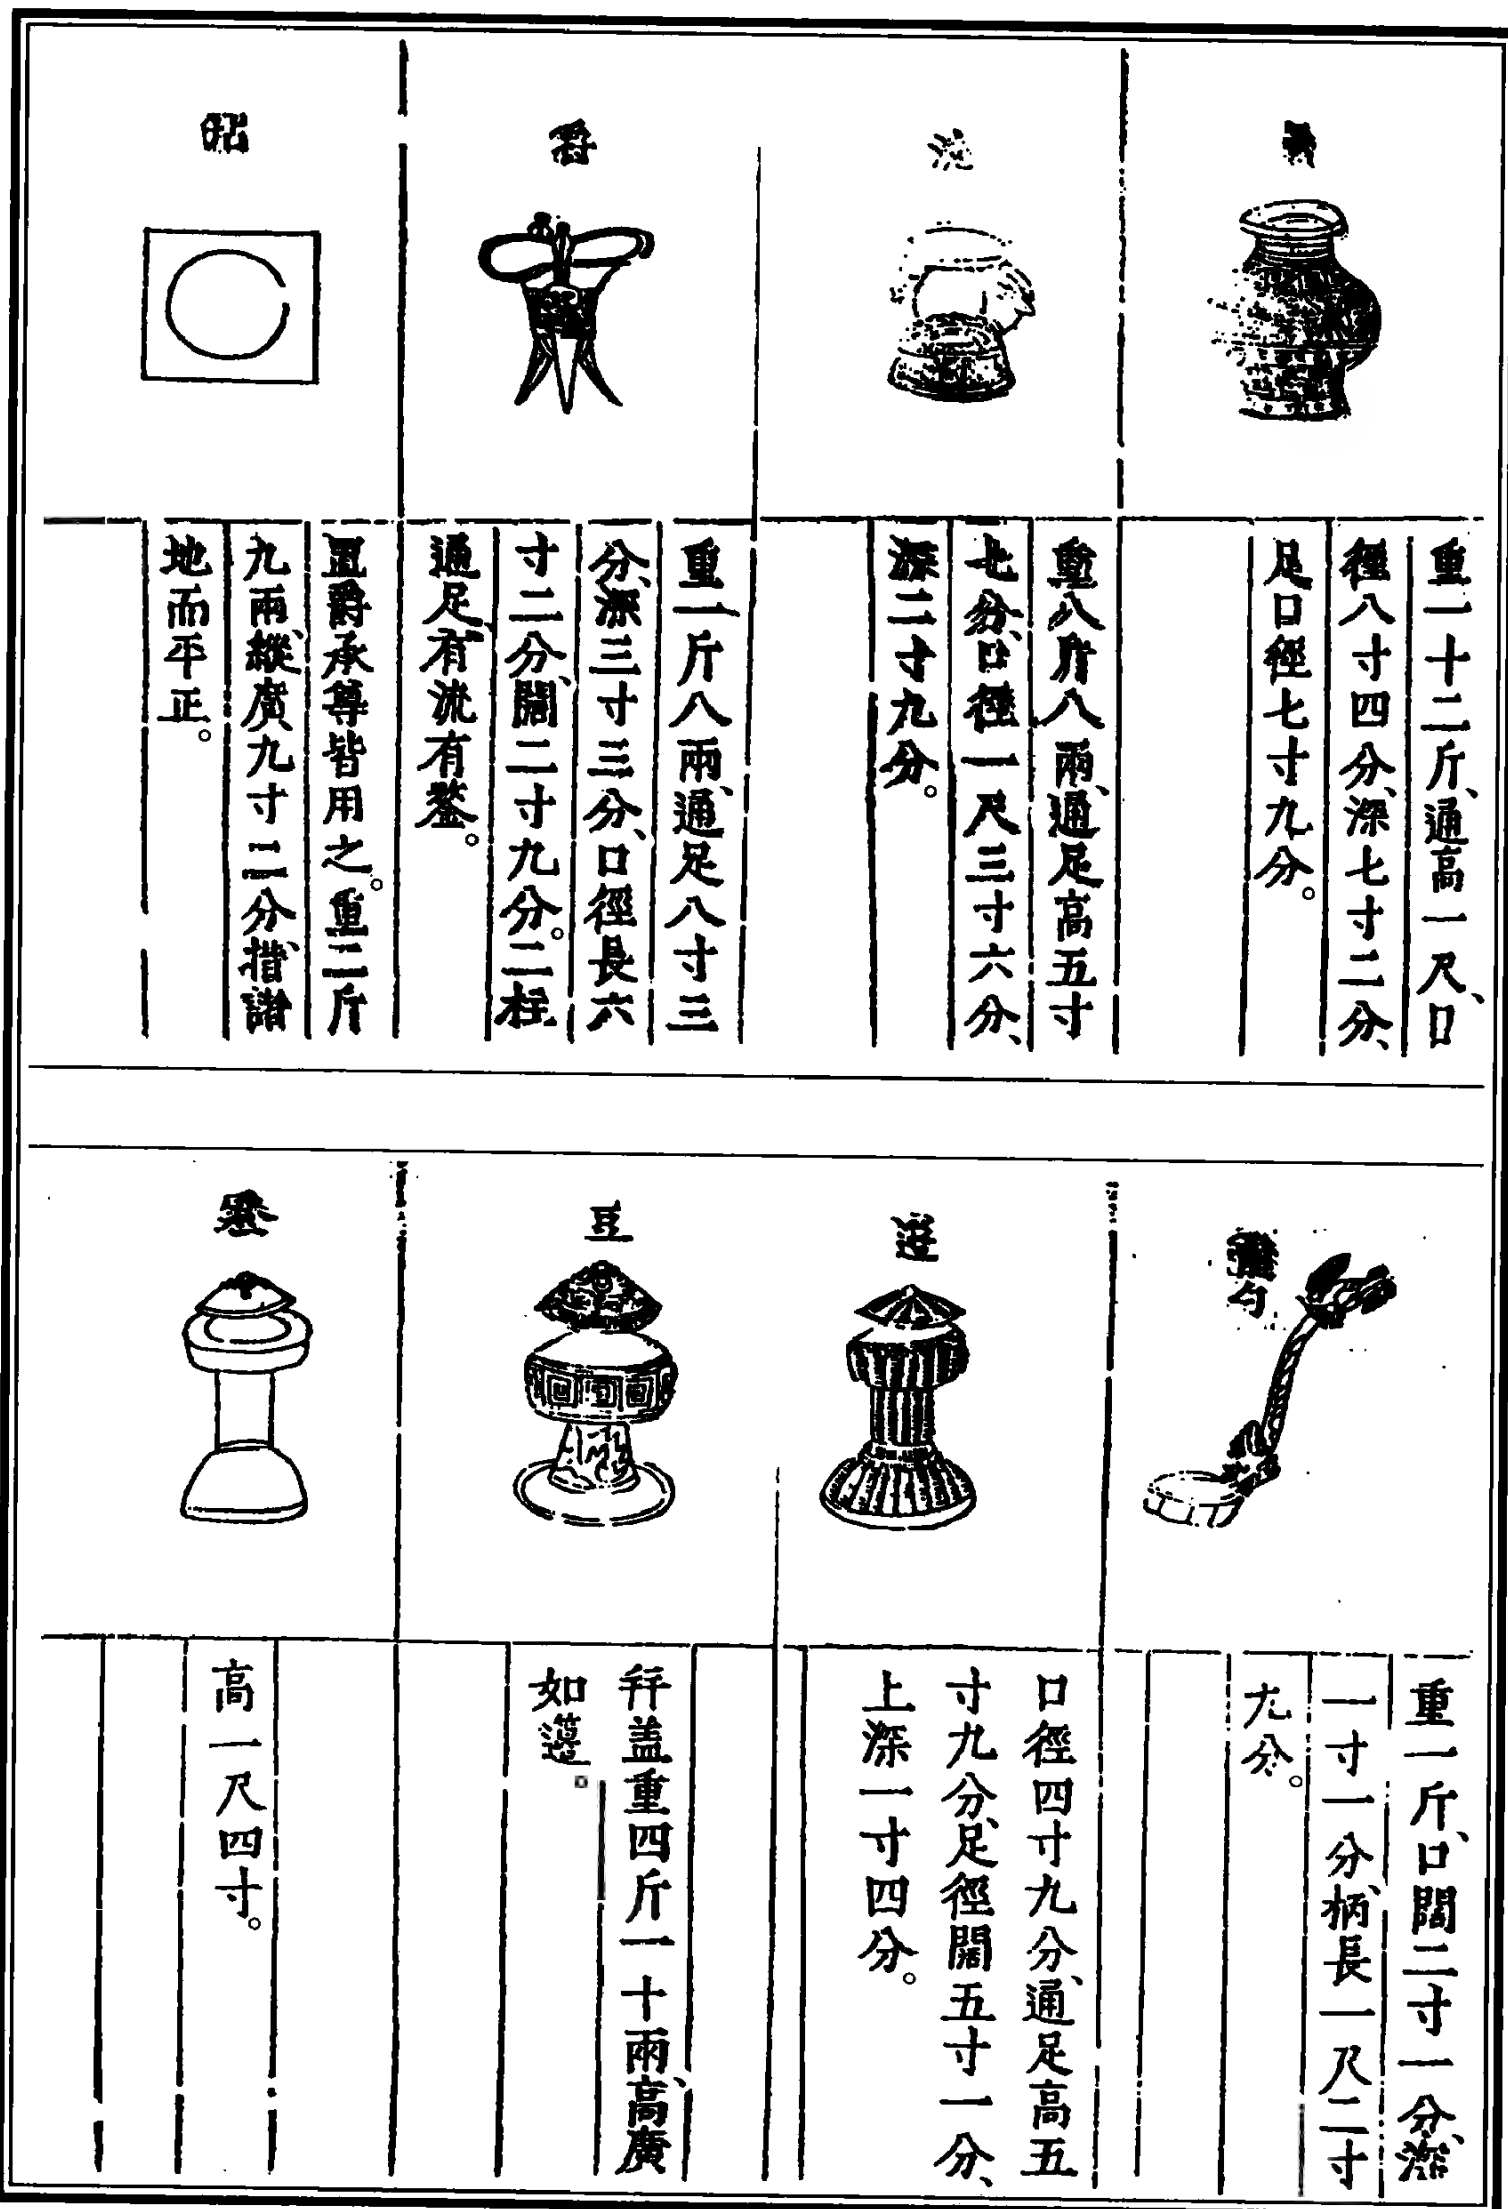 重一十二斤、通高一尺、口
徑八寸四分、深七寸二分、
足口徑七寸九分。
洗
重八斤八兩、通足高五寸
七分、口徑一尺三寸六分、
深二寸九分。
爵
重一斤八兩、通足八寸三
分、深三寸三分、口徑長六
寸二分、闊二寸九分。二柱
通足、有流有鋬。
置爵承尊皆用之。重二斤
九兩、縱廣九寸二分、措諸
地而平正。
勺
重一斤、口闊二寸一分、深
一寸一分、柄長一尺二寸
九分。
籩
口徑四寸九分、通足高五
寸九分、足徑闊五寸一分、
上深一寸四分。
豆
幷盖重四斤一十兩、高廣
如籩。
高一尺四寸。